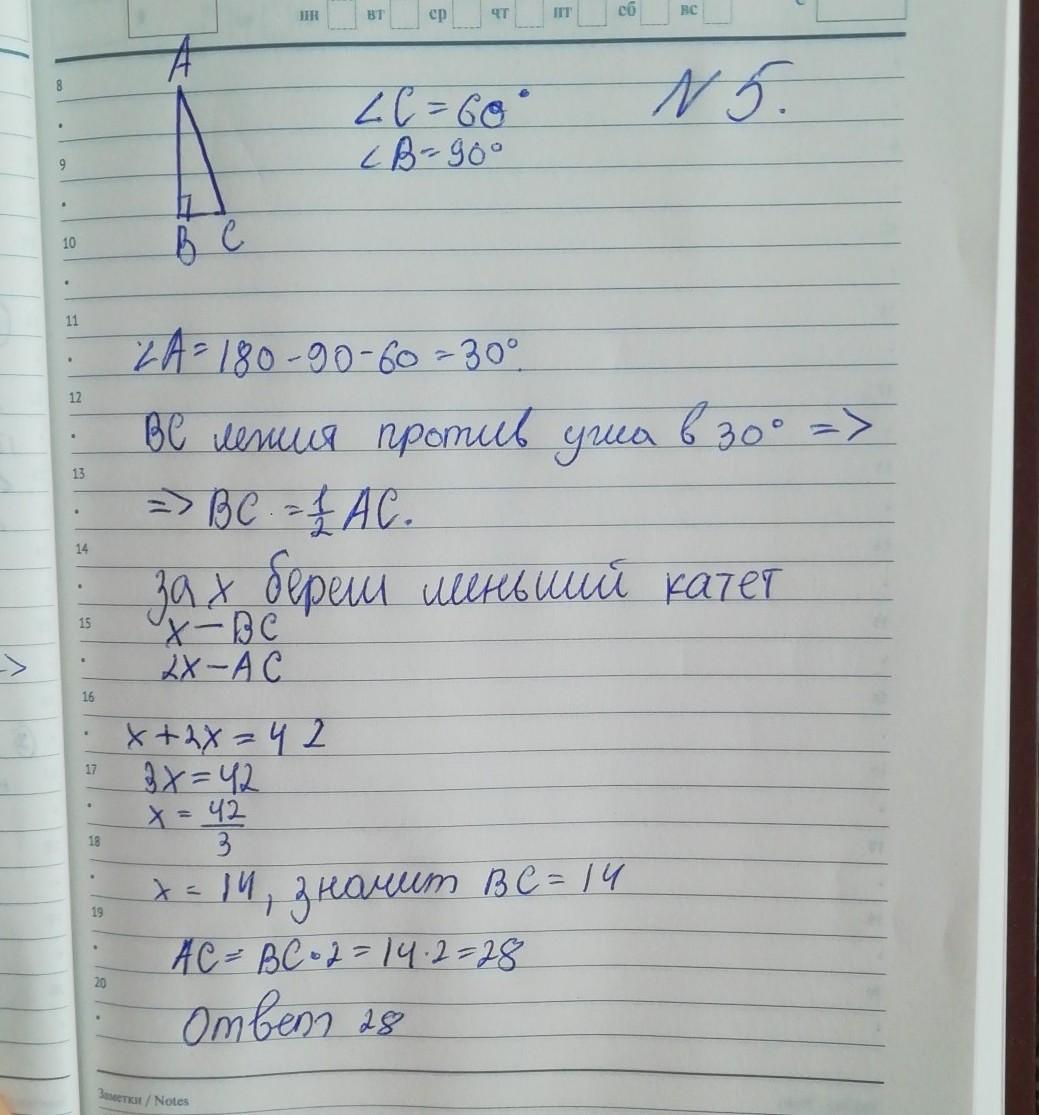 пн вт ср чт пт сб вс
A
∠C = 60°
N 5.
∠B = 90°
B C
∠A = 180 - 90 - 60 = 30°.
BC лежия против угла в 30° =>
=> BC = 1/2 AC.
За x берем меньший катет
x - BC
2x - AC
x + 2x = 42
3x = 42
x = 42/3
x = 14, значит BC = 14
AC = BC • 2 = 14 · 2 = 28
Ответ 28
8
9
10
11
12
13
14
15
16
17
18
19
20
Заметки / Notes